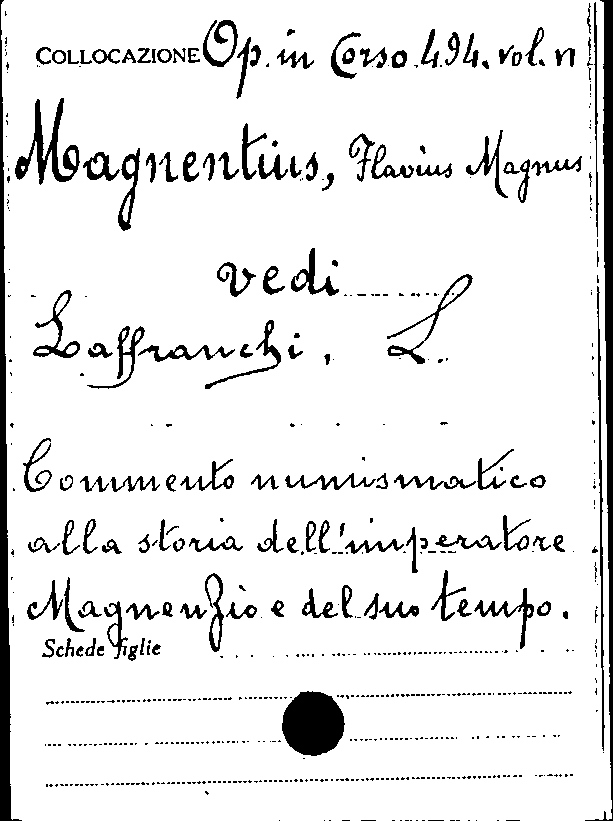 COLLOCAZIONE Op. in Corso 494. vol. n
Magnentius, Flavius Magnus
vedi
Laffranchi, L.
Commento numismatico
alla storia dell'imperatore
Magnenzio e del suo tempo.
Schede figlie